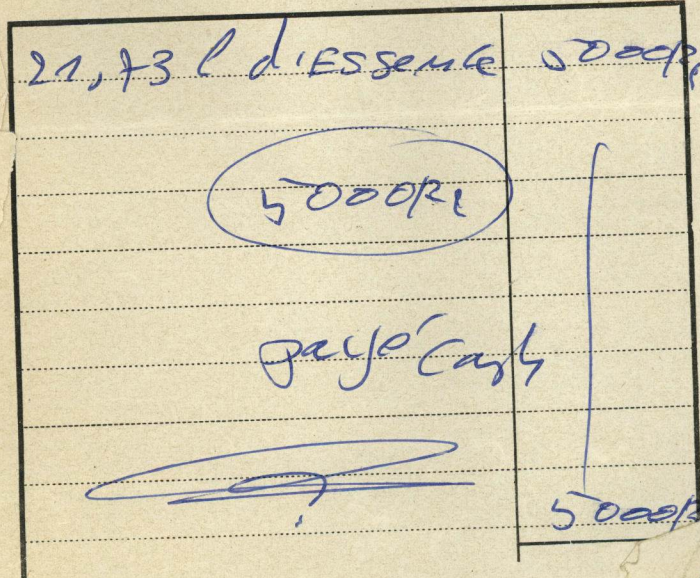 21,73 l d'Essence 5000
5000
payé Cash
5000